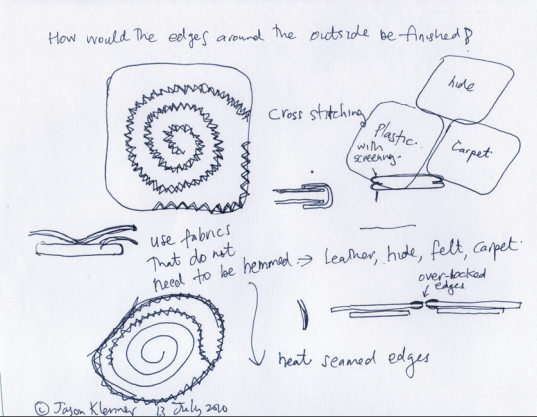 How would the edges around the outside be finished?
hide
Cross stitching
Plastic
with
screening.
Carpet
use fabrics
that do not
need to be hemmed → Leather, hide, felt, carpet.
over-locked
edges
heat seamed edges
© Jason 13 July 2010